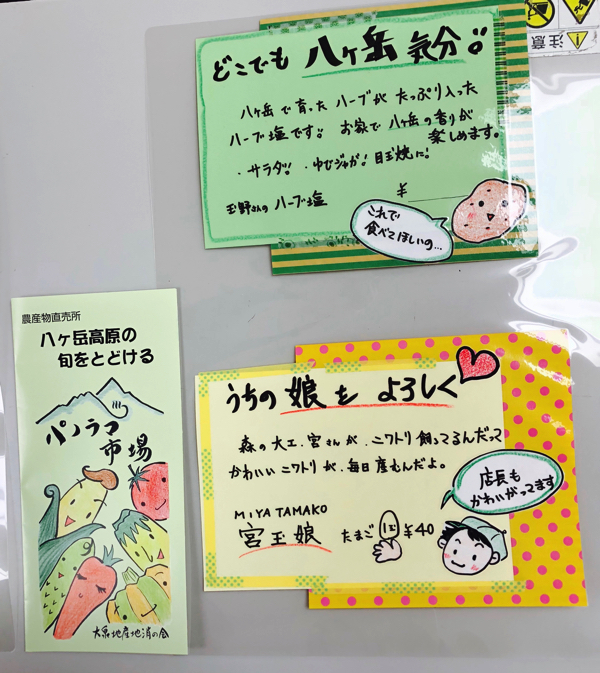 どこでも 八ヶ岳 気分!!
八ヶ岳で育ったハーブが たっぷり入った
ハーブ塩です!! お家で八ヶ岳の香りが
楽しめます。
・サラダ! ・ゆでジャガ! 目玉焼に!
玉野さんの ハーブ塩 ¥
これで
食べてほしいの…
注意
農産物直売所
八ヶ岳高原の
旬をとどける
パノラマ
市場
大泉地産地消の会
うちの 娘を よろしく
森の大工、宮さんが、ニワトリ飼ってるんだって
かわいいニワトリが、毎日産むんだよ。
店長も
かわいがってます
MIYA TAMAKO
宮玉娘 たまご 1こ ¥40